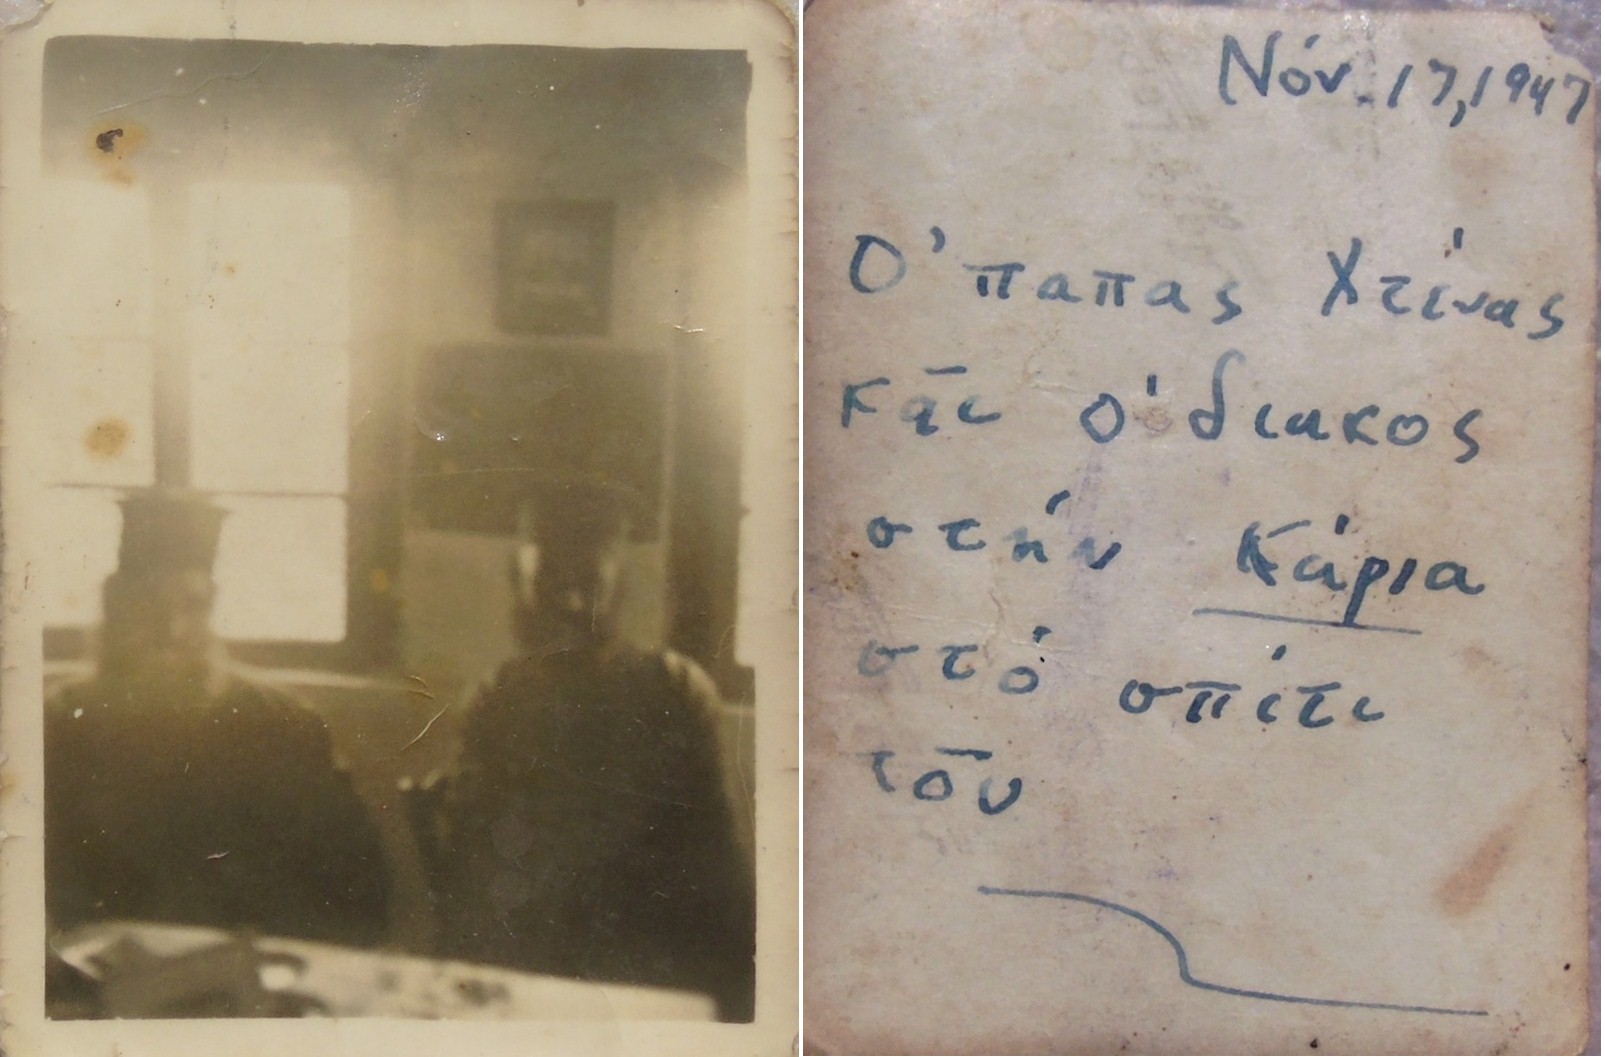 Νόν. 17, 1947
Ο' παπας Χτένας
κᾶι ο' διακος
στήν Κάρια
στό σπίτι
τοῦ